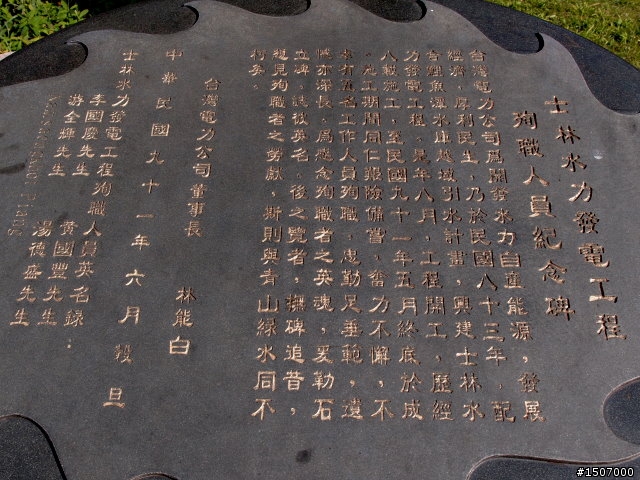 士林水力發電工程
殉職人員紀念碑
台灣電力公司為開發水力自產能源，發展
經濟，厚利民生，乃於民國八十三年，配
合鯉魚潭水庫越域引水計畫，興建士林水
力發電工程。是年八月，工程開工，歷經
八載施工，至民國九十一年五月終底於成
。施工期間同仁艱險備嘗，奮力不懈，不
幸有五名工作人員殉職，忠勤足垂範，遺
憾亦深長。為感念殉職者之英魂，爰勒石
立碑，誌彼英名。後之覽者，撫碑追昔，
想見殉職者之勞獻，斯則與青山綠水同不
朽矣。
台灣電力公司董事長 林能白
中華民國九十一年六月 穀旦
士林水力發電工程殉職人員英名錄：
李國慶先生 黃國豐先生
游全輝先生 湯德盛先生
#1507000